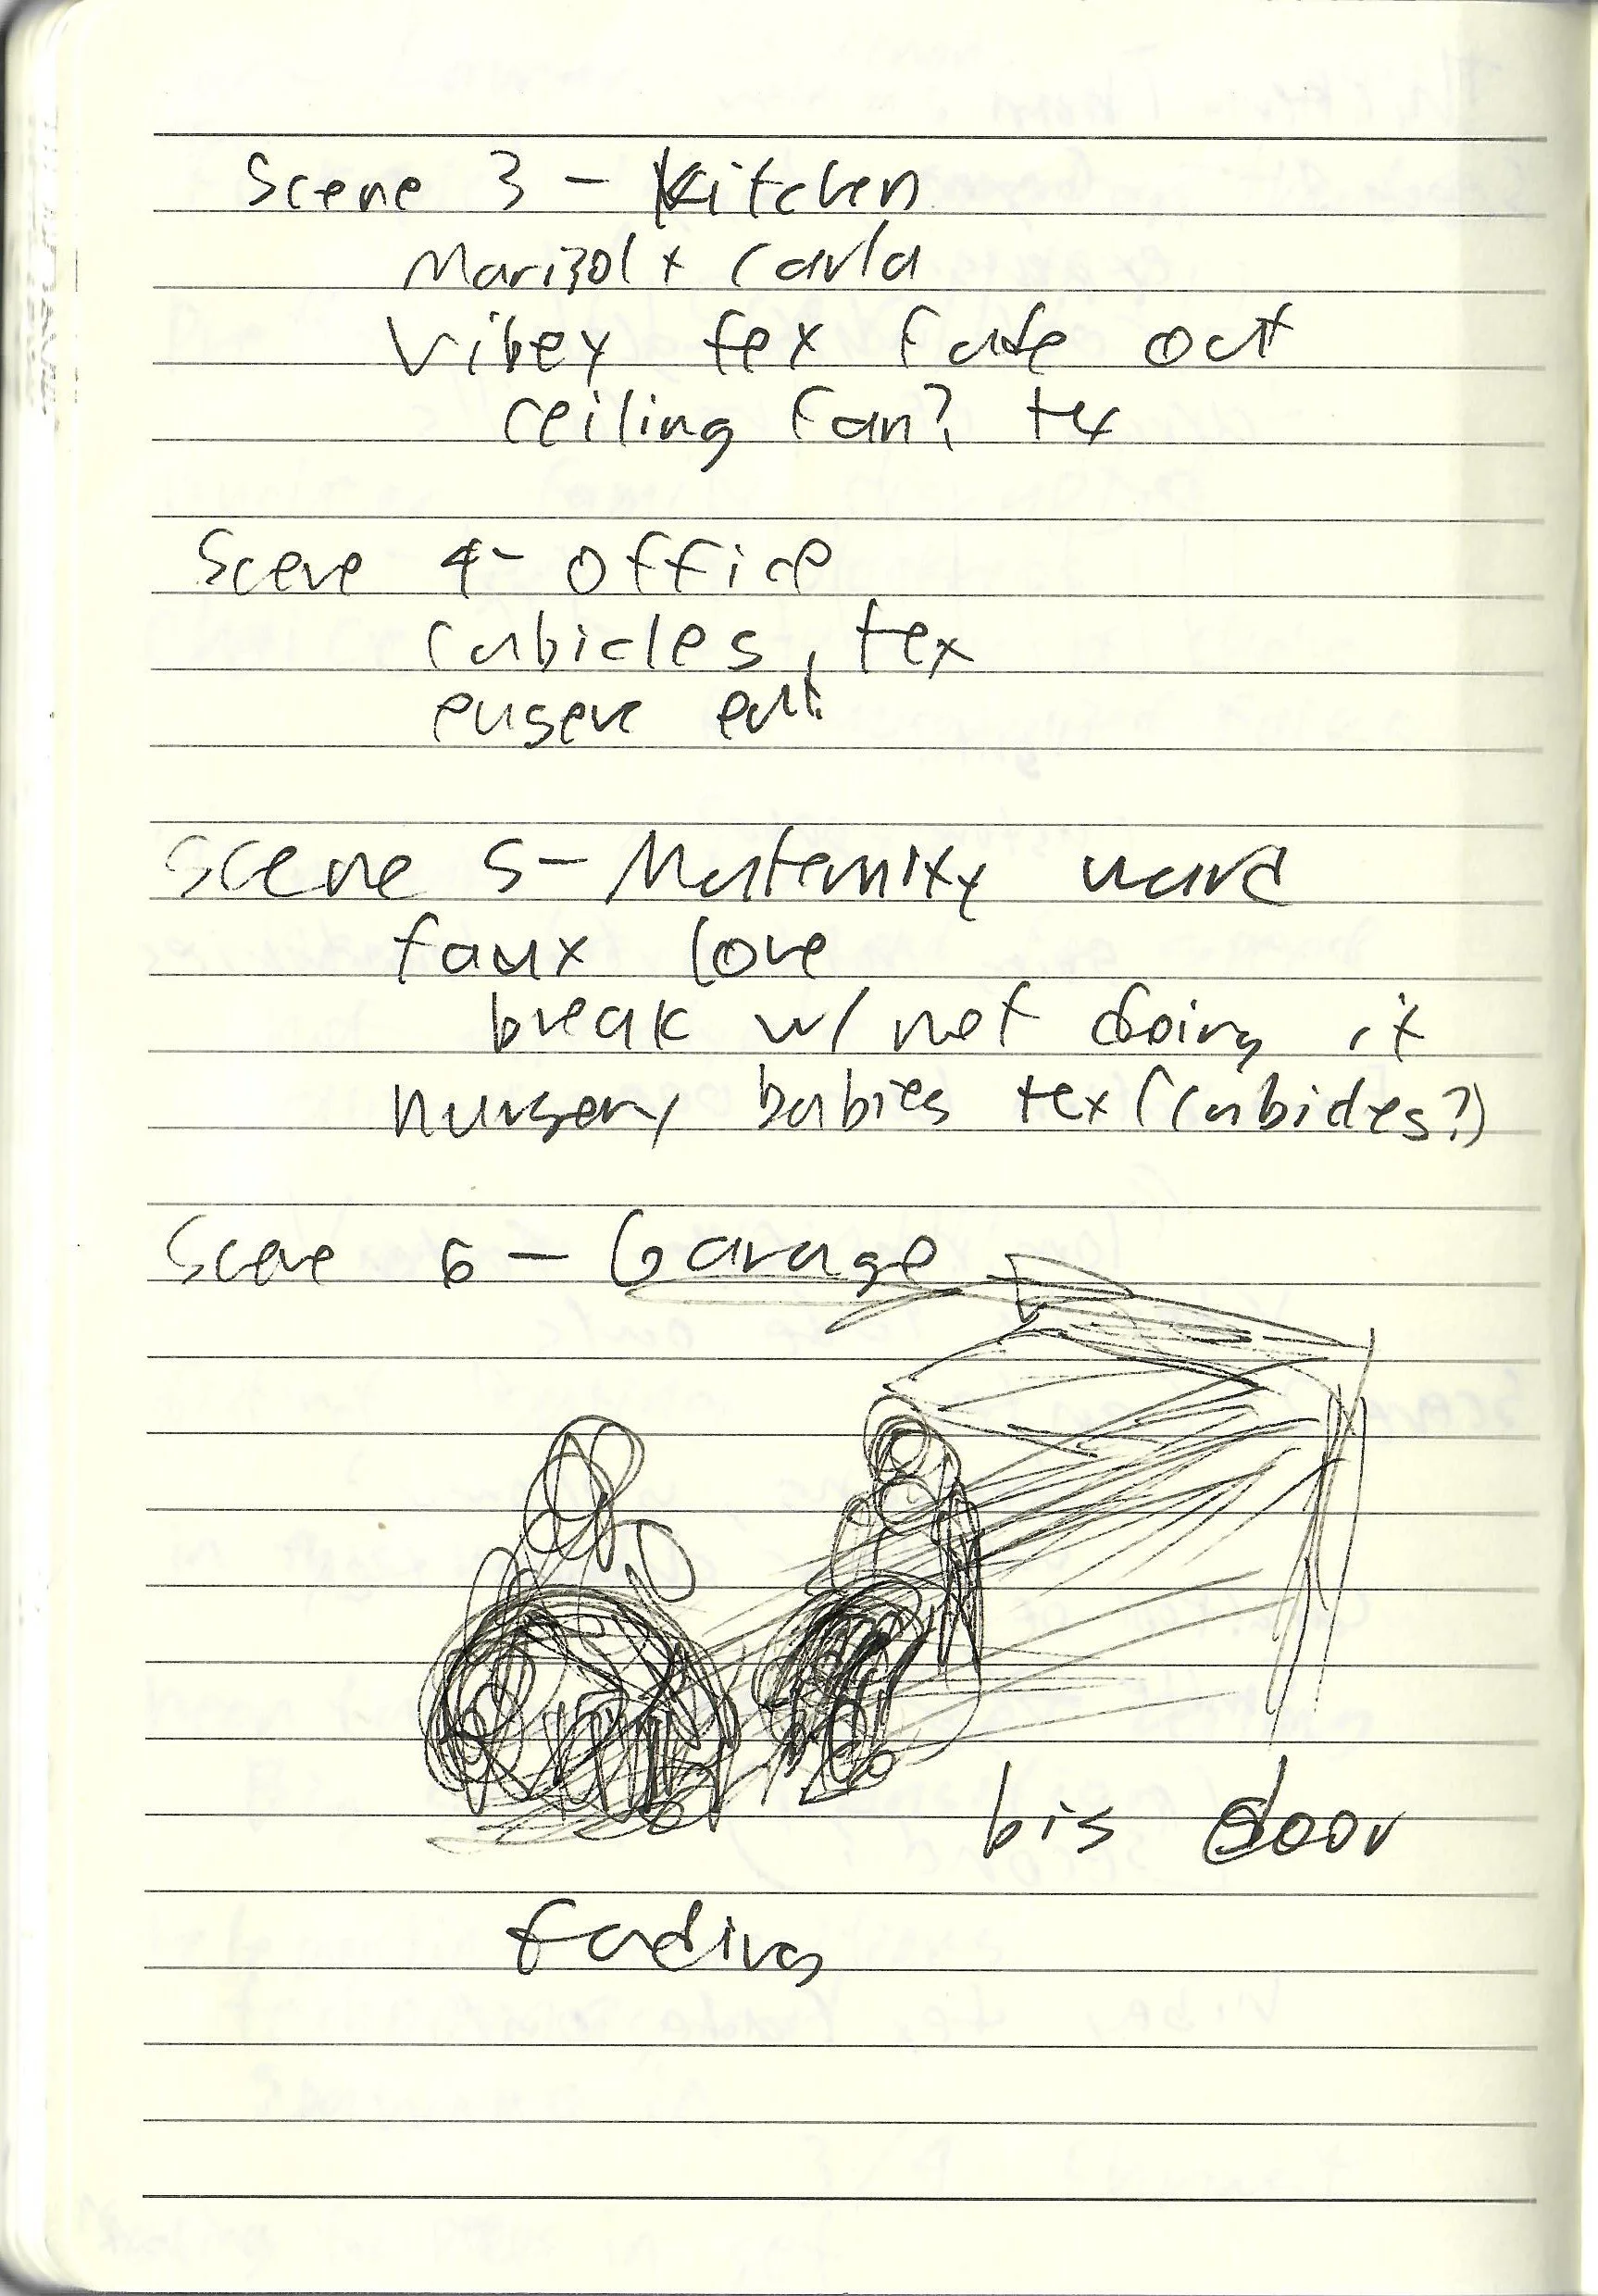 Scene 3 - Kitchen
Marizol + Carla
Vibey tex fade out
ceiling fan? tex
Scene 4 - Office
cubicles, tex
eugene
Scene 5 - Maternity ward
faux love
break w/ not doing it
nursery babies tex (cubicles?)
Scene 6 - Garage
big door
fading